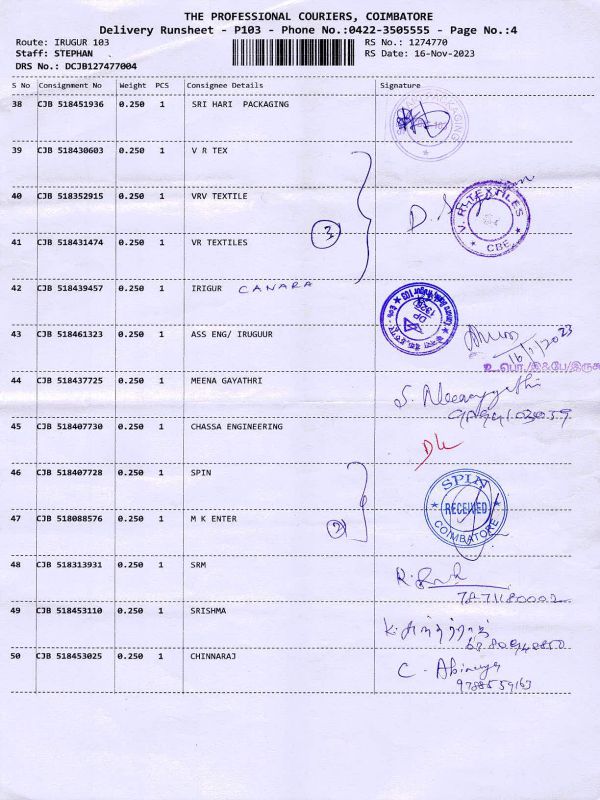 THE PROFESSIONAL COURIERS, COIMBATORE
Delivery Runsheet - P103 - Phone No.:0422-3505555 - Page No.:4
Route: IRUGUR 103 RS No.: 1274770
Staff: STEPHAN RS Date: 16-Nov-2023
DRS No.: DCJB127477004
S No Consignment No Weight PCS Consignee Details Signature
38 CJB 518451936 0.250 1 SRI HARI PACKAGING
39 CJB 518430603 0.250 1 V R TEX
40 CJB 518352915 0.250 1 VRV TEXTILE
V.R. TEXTILES
CBE
3
41 CJB 518431474 0.250 1 VR TEXTILES
42 CJB 518439457 0.250 1 IRIGUR CANARA
43 CJB 518461323 0.250 1 ASS ENG/ IRUGUUR
44 CJB 518437725 0.250 1 MEENA GAYATHRI
45 CJB 518407730 0.250 1 CHASSA ENGINEERING
46 CJB 518407728 0.250 1 SPIN
SPIN
RECEIVED
COIMBATORE
2
47 CJB 518088576 0.250 1 M K ENTER
48 CJB 518313931 0.250 1 SRM
49 CJB 518453110 0.250 1 SRISHMA
50 CJB 518453025 0.250 1 CHINNARAJ
C. Abinaya
9788559163